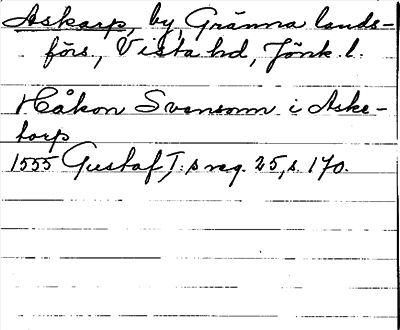 Askarp, by, Gränna lands-
förs., Vista hd, Jönk. l.
Håkon Svensonn i Aske-
torp
1555 Gustaf I:s reg. 25, s. 170.